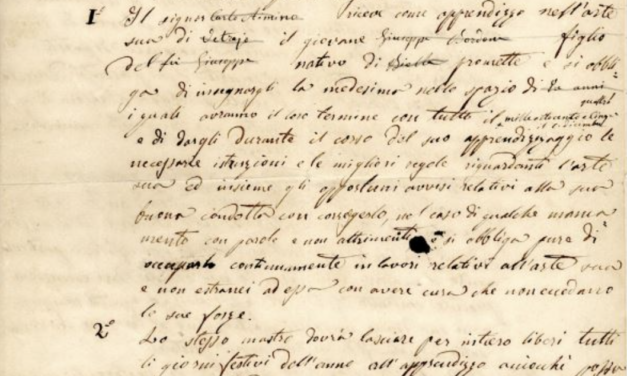 1° Il signor Carlo riceve come apprendizzo nell'arte
sua di il giovane Giuseppe figlio
del fu Giuseppe nativo di Biella promette e si obbli=
ga di insegnargli la medesima nello spazio di anni
quattro
i quali avranno il loro termine con tutto il mille ottocento
e di dargli durante il corso del suo apprendizzaggio le
necessarie istruzioni e le migliori regole riguardanti l'arte
sua ed insieme gli opportuni avvisi relativi alla sua
buona condotta con correggerlo, nel caso di qualche manca
mento con parole e non altrimenti e si obbliga pure di
occuparlo continuamente in lavori relativi all'arte sua
e non estranei ad essa con avere cura che non eccedano
le sue forze.
2° Lo stesso mastro dovrà lasciare per intiero liberi tutti
li giorni festivi dell'anno all'apprendizzo acciocchè possa